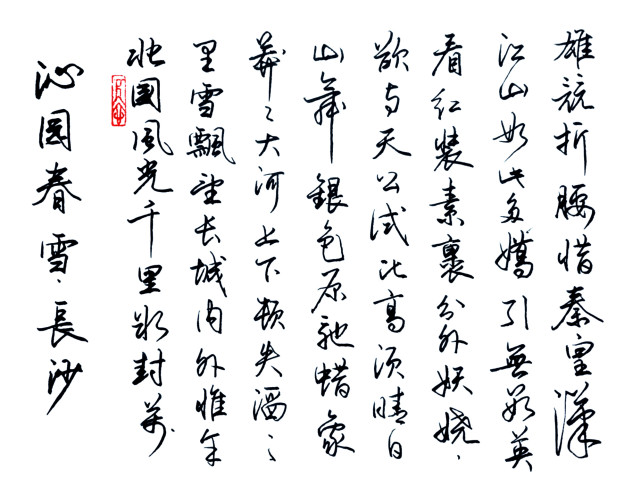 沁园春雪、長沙
北国風光千里冰封萬
里雪飄望长城内外惟余
莽々大河上下顿失滔々
山舞銀色原驰蜡象
欲与天公试比高须晴日
看红装素裹分外妖娆、
江山如此多嬌引無数英
雄競折腰惜秦皇漢